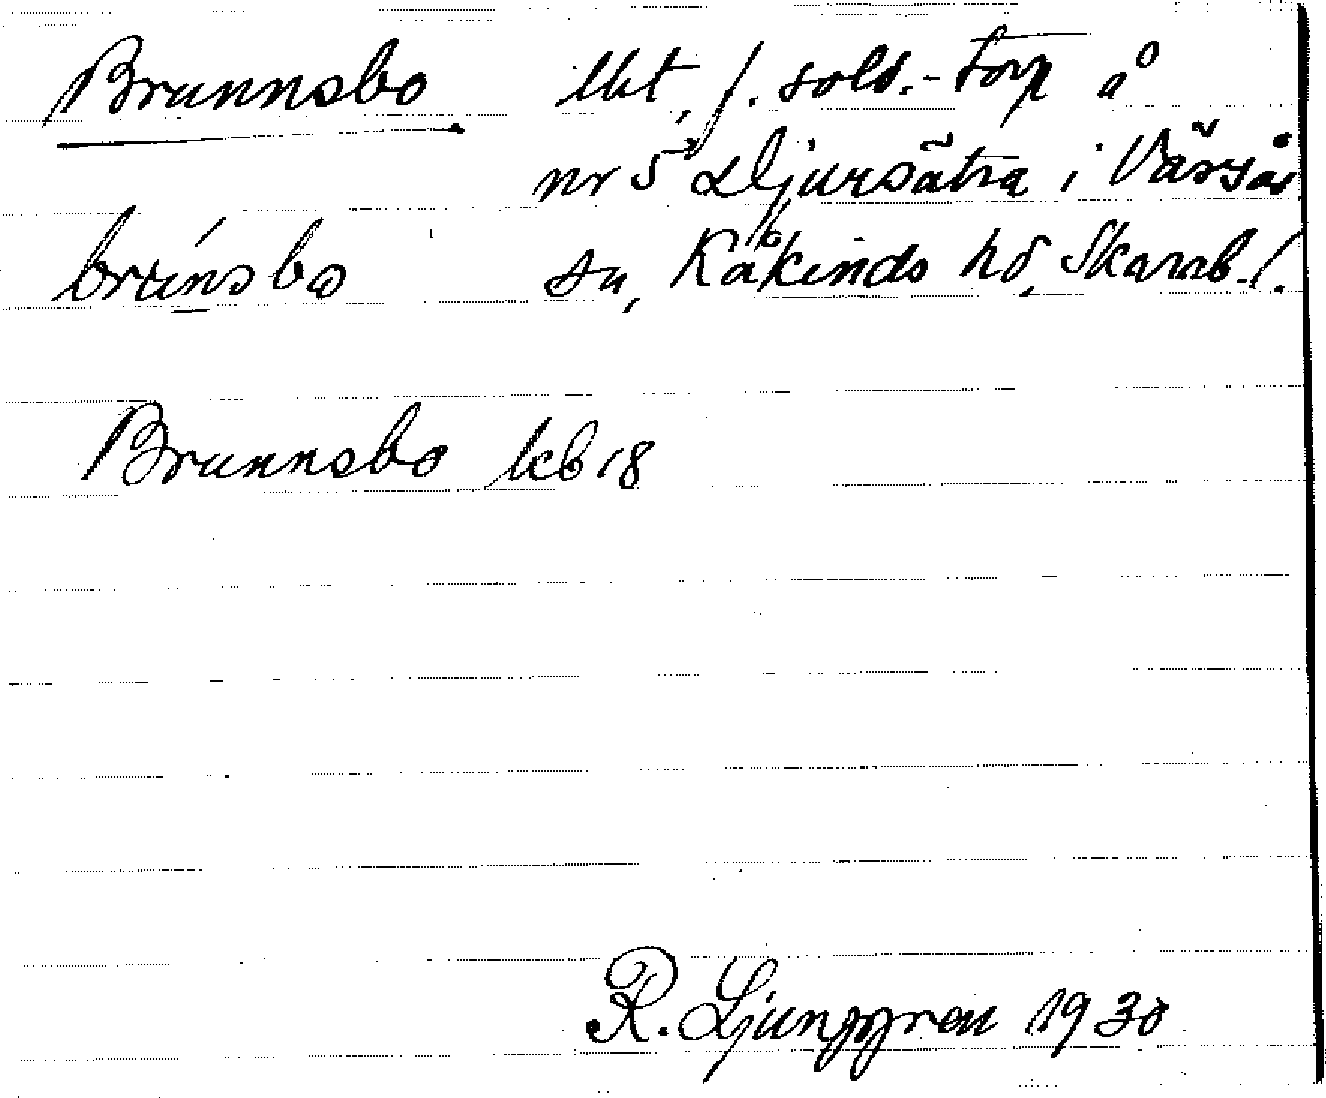 Brunnsbo lht, f. sold.-torp å
nr 5 Djursätra i Värsås
brúnsbo sn, Kåkinds hd, Skarab. l.
Brunnsbo kb 18
R. Ljunggren 1930